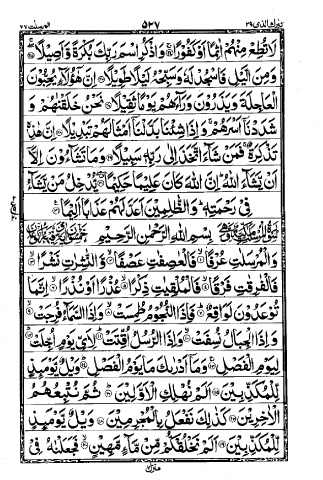 تبٰرك الذی ٢٩ ٥٢٧ المرسلت ٧٧
لَا تُطِعْ مِنْهُمْ اٰثِمًا اَوْ كَفُوْرًا ۞ وَاذْكُرِ اسْمَ رَبِّكَ بُكْرَةً وَّاَصِيْلًا ۞
وَمِنَ الَّيْلِ فَاسْجُدْ لَهٗ وَسَبِّحْهُ لَيْلًا طَوِيْلًا ۞ اِنَّ هٰٓؤُلَآءِ يُحِبُّوْنَ
الْعَاجِلَةَ وَيَذَرُوْنَ وَرَآءَهُمْ يَوْمًا ثَقِيْلًا ۞ نَحْنُ خَلَقْنٰهُمْ وَ
شَدَدْنَآ اَسْرَهُمْ ۚ وَاِذَا شِئْنَا بَدَّلْنَآ اَمْثَالَهُمْ تَبْدِيْلًا ۞ اِنَّ هٰذِهٖ
تَذْكِرَةٌ ۚ فَمَنْ شَآءَ اتَّخَذَ اِلٰى رَبِّهٖ سَبِيْلًا ۞ وَمَا تَشَآءُوْنَ اِلَّآ
اَنْ يَّشَآءَ اللّٰهُ ؕ اِنَّ اللّٰهَ كَانَ عَلِيْمًا حَكِيْمًا ۞ يُّدْخِلُ مَنْ يَّشَآءُ
فِيْ رَحْمَتِهٖ ؕ وَالظّٰلِمِيْنَ اَعَدَّ لَهُمْ عَذَابًا اَلِيْمًا ۞
بِسْمِ اللّٰهِ الرَّحْمٰنِ الرَّحِيْمِ
وَالْمُرْسَلٰتِ عُرْفًا ۞ فَالْعٰصِفٰتِ عَصْفًا ۞ وَّالنّٰشِرٰتِ نَشْرًا ۞
فَالْفٰرِقٰتِ فَرْقًا ۞ فَالْمُلْقِيٰتِ ذِكْرًا ۞ عُذْرًا اَوْ نُذْرًا ۞ اِنَّمَا
تُوْعَدُوْنَ لَوَاقِعٌ ۞ فَاِذَا النُّجُوْمُ طُمِسَتْ ۞ وَاِذَا السَّمَآءُ فُرِجَتْ ۞
وَاِذَا الْجِبَالُ نُسِفَتْ ۞ وَاِذَا الرُّسُلُ اُقِّتَتْ ۞ لِاَيِّ يَوْمٍ اُجِّلَتْ ۞
لِيَوْمِ الْفَصْلِ ۞ وَمَآ اَدْرٰىكَ مَا يَوْمُ الْفَصْلِ ۞ وَيْلٌ يَّوْمَئِذٍ
لِّلْمُكَذِّبِيْنَ ۞ اَلَمْ نُهْلِكِ الْاَوَّلِيْنَ ۞ ثُمَّ نُتْبِعُهُمُ
الْاٰخِرِيْنَ ۞ كَذٰلِكَ نَفْعَلُ بِالْمُجْرِمِيْنَ ۞ وَيْلٌ يَّوْمَئِذٍ
لِّلْمُكَذِّبِيْنَ ۞ اَلَمْ نَخْلُقْكُّمْ مِّنْ مَّآءٍ مَّهِيْنٍ ۞ فَجَعَلْنٰهُ فِيْ
منزل